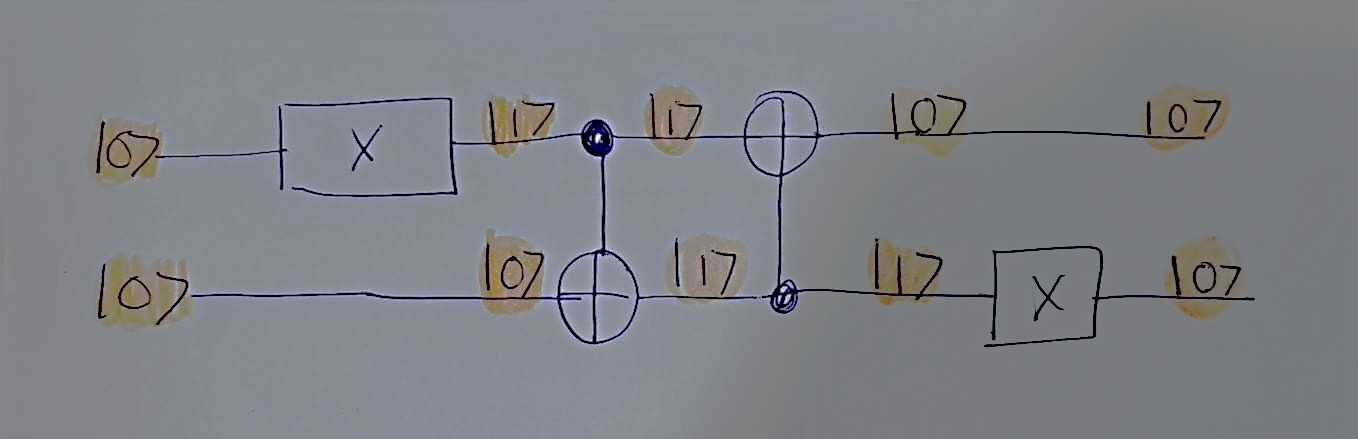 |0> X |1> |1> |0> |0>
|0> |0> |1> |1> X |0>